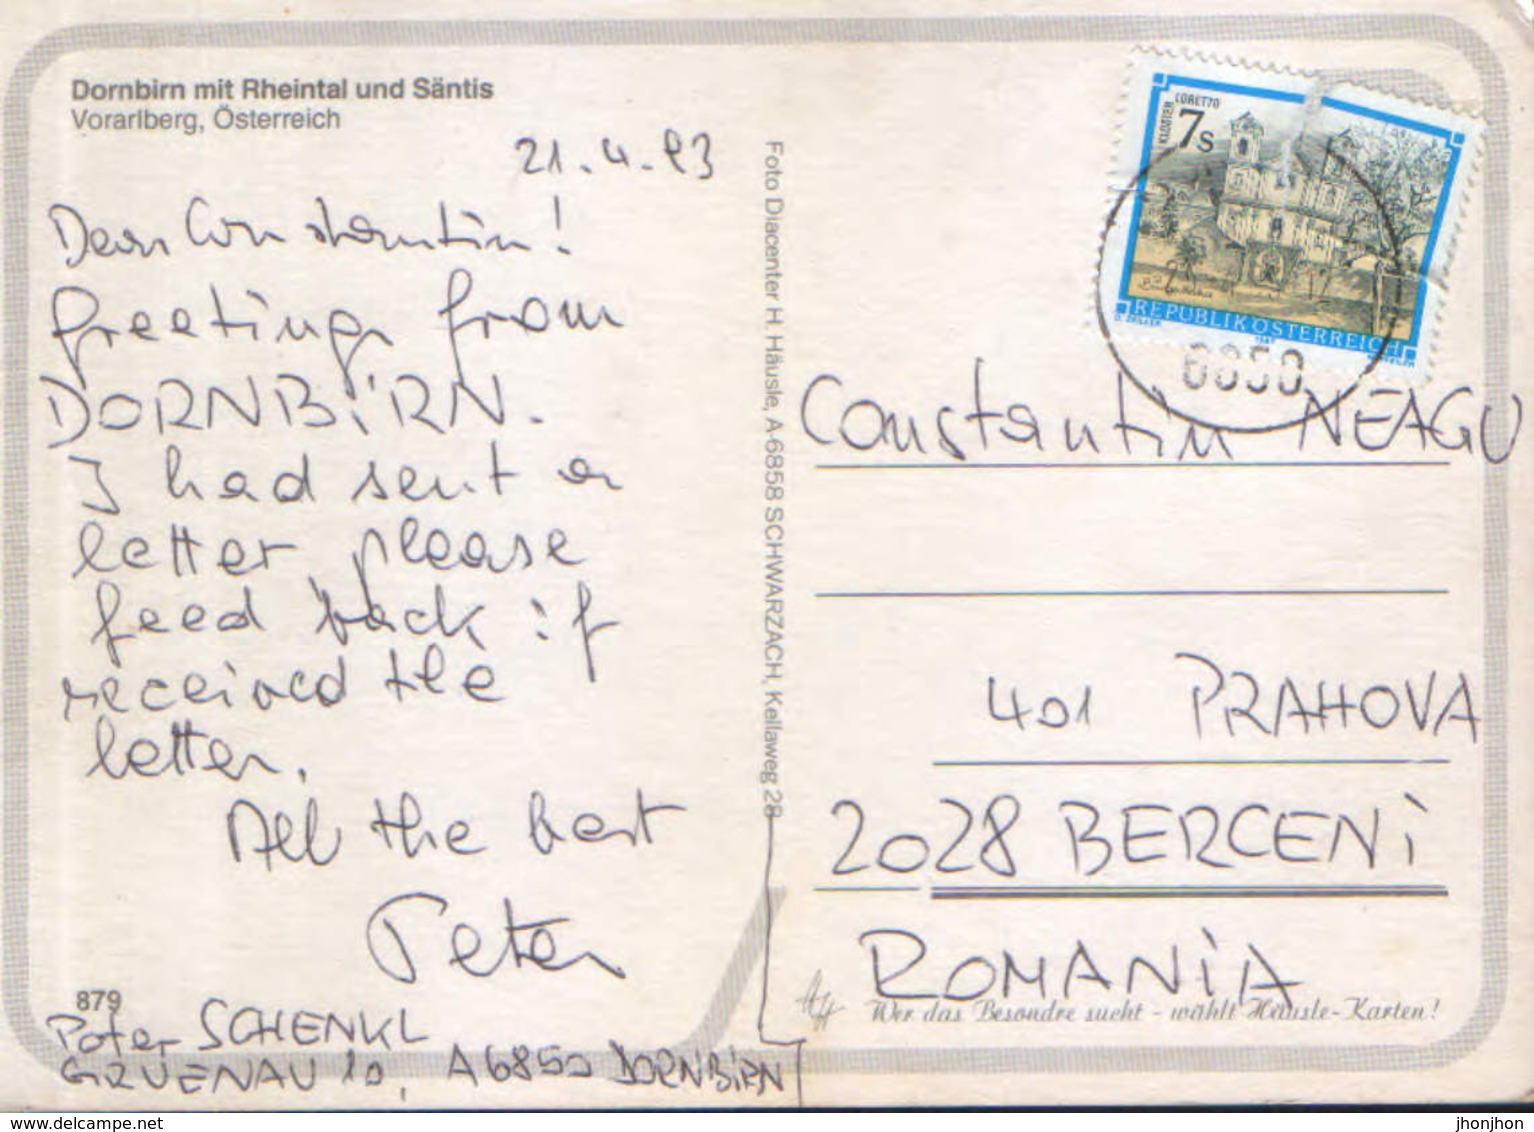 Dornbirn mit Rheintal und Säntis
Vorarlberg, Österreich
21.4.93
Dear Constantin!
Greetings from
DORNBiRN.
I had sent a
letter, please
feed back if
received the
letter.
All the best
Peter
879
Peter SCHENKL
GRUENAU 10, A 6850 DORNBiRN
Foto Diacenter H. Häusle, A-6858 SCHWARZACH, Kellaweg 28
KLOSTER LORETTO
7s
REPUBLIK ÖSTERREICH
6850
Constantin NEAGU
401 PRAHOVA
2028 BERCENi
ROMANiA
Wer das Besondre sucht - wählt Häusle-Karten!
delcampe.net
jhonjhon